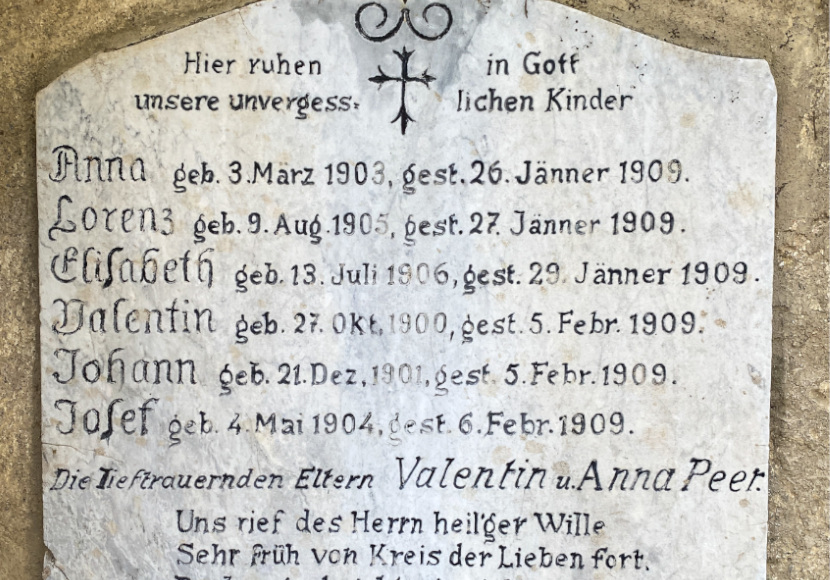 Hier ruhen in Gott
unsere unvergess. lichen Kinder
Anna geb. 3. März 1903, gest. 26. Jänner 1909.
Lorenz geb. 9. Aug. 1905, gest. 27. Jänner 1909.
Elisabeth geb. 13. Juli 1906, gest. 29. Jänner 1909.
Valentin geb. 27. Okt. 1900, gest. 5. Febr. 1909.
Johann geb. 21. Dez. 1901, gest. 5. Febr. 1909.
Josef geb. 4. Mai 1904, gest. 6. Febr. 1909.
Die Tieftrauernden Eltern Valentin u. Anna Peer.
Uns rief des Herrn heil'ger Wille
Sehr früh von Kreis der Lieben fort.